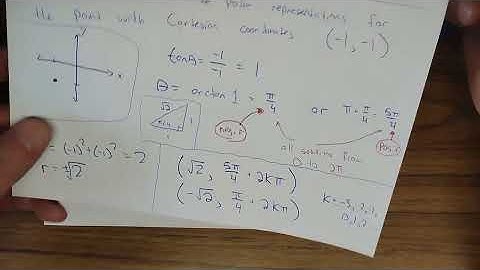 polar representations for
the point with Cartesian coordinates (-1,-1)
y
x
tanθ = -1/-1 = 1
θ = arctan 1 = π/4 or π + π/4 = 5π/4
√2
π/4
1
1
neg. r
pos. r
all solutions from
0 to 2π
= (-1)² + (-1)² = 2
r = ±√2
(√2, 5π/4 + 2kπ)
(-√2, π/4 + 2kπ)